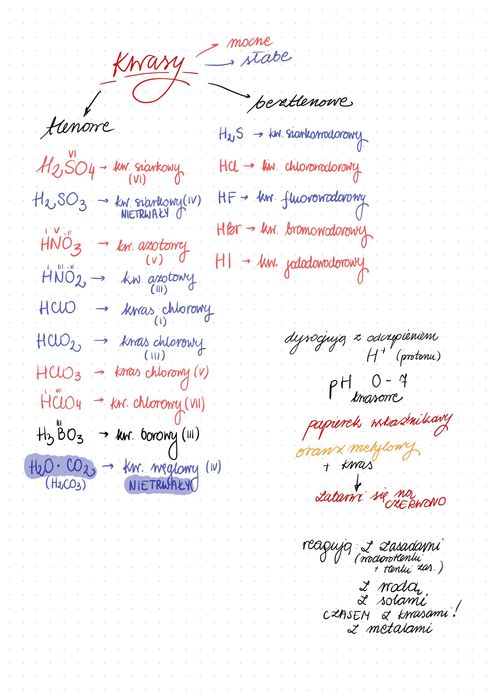 Kwasy
mocne
słabe
tlenowe
H₂SO₄ → kw. siarkowy
VI
(VI)
H₂SO₃ → kw. siarkowy (IV)
NIETRWAŁY
HNO₃ → kw. azotowy
I V II
(V)
HNO₂ → kw. azotowy
I III II
(III)
HClO → kwas chlorowy
(I)
HClO₂ → kwas chlorowy
(III)
HClO₃ → kwas chlorowy (V)
HClO₄ → kw. chlorowy (VII)
I VII
H₃BO₃ → kw. borowy (III)
III
H₂O · CO₂ → kw. węglowy (IV)
(H₂CO₃) NIETRWAŁY
beztlenowe
H₂S → kw. siarkowodorowy
HCl → kw. chlorowodorowy
HF → kw. fluorowodorowy
HBr → kw. bromowodorowy
HI → kw. jodowodorowy
dysocjują z odczepieniem
H⁺ (protonu)
pH 0 - 7
kwasowe
papierek wskaźnikowy
oranż metylowy
+ kwas
zabarwi się na
CZERWONO
reagują z zasadami
(wodorotlenki
+ tlenki zas.)
z wodą
z solami
CZASEM z kwasami!
z metalami